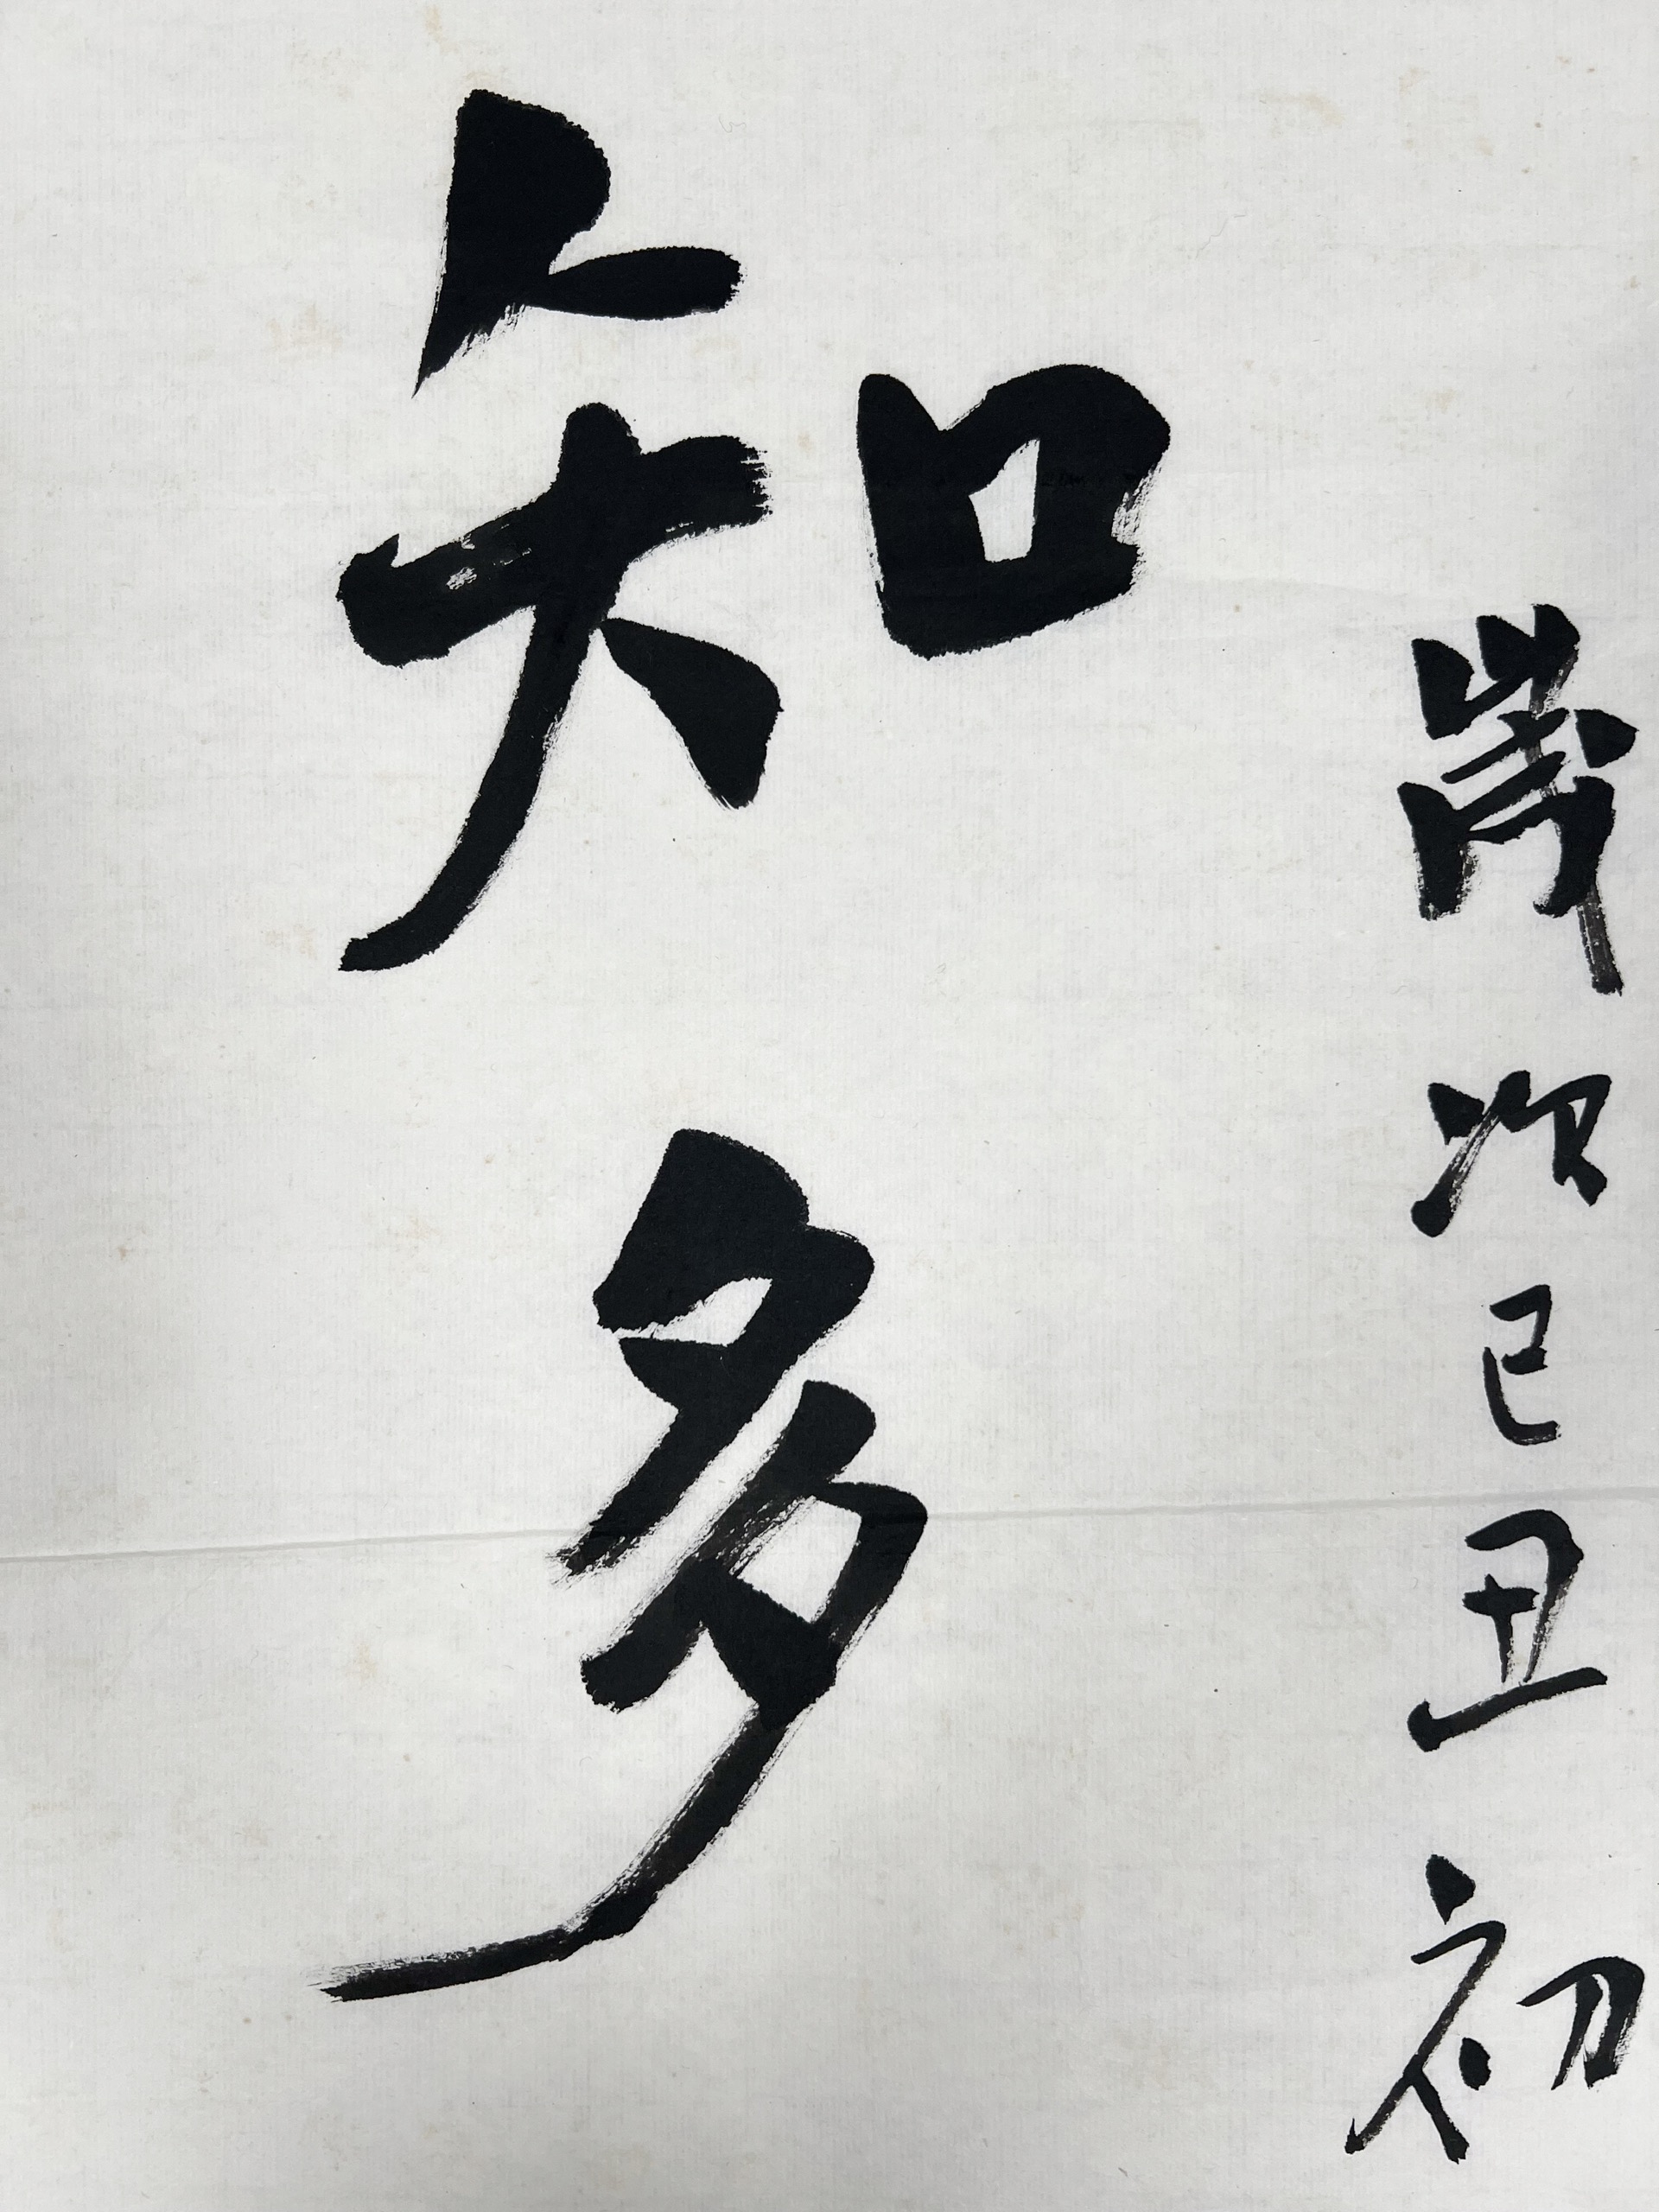 歲次己丑初
知多